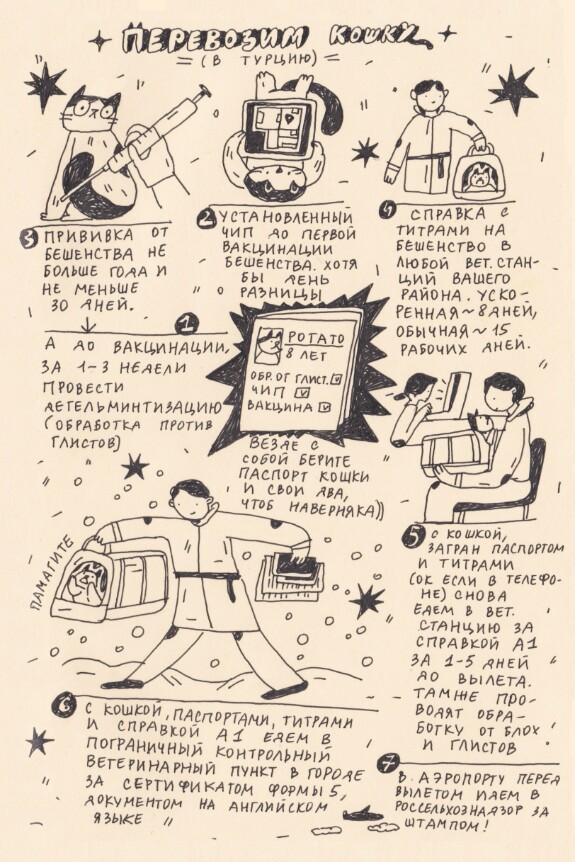 ПЕРЕВОЗИМ КОШКУ
(В ТУРЦИЮ)
3 ПРИВИВКА ОТ
БЕШЕНСТВА НЕ
БОЛЬШЕ ГОДА И
НЕ МЕНЬШЕ
30 ДНЕЙ.
2 УСТАНОВЛЕННЫЙ
ЧИП ДО ПЕРВОЙ
ВАКЦИНАЦИИ
БЕШЕНСТВА. ХОТЯ
БЫ ДЕНЬ
РАЗНИЦЫ
4 СПРАВКА С
ТИТРАМИ НА
БЕШЕНСТВО В
ЛЮБОЙ ВЕТ. СТАН-
ЦИЙ ВАШЕГО
РАЙОНА. УСКО-
РЕННАЯ ~ 8 ДНЕЙ,
ОБЫЧНАЯ ~ 15
РАБОЧИХ ДНЕЙ.
1
А ДО ВАКЦИНАЦИИ,
ЗА 1-3 НЕДЕЛИ
ПРОВЕСТИ
ДЕГЕЛЬМИНТИЗАЦИЮ
(ОБРАБОТКА ПРОТИВ
ГЛИСТОВ)
POTATO
8 ЛЕТ
ОБР. ОТ ГЛИСТ.
ЧИП
ВАКЦИНА
ВЕЗДЕ С
СОБОЙ БЕРИТЕ
ПАСПОРТ КОШКИ
И СВОИ ДВА,
ЧТОБ НАВЕРНЯКА))
5 С КОШКОЙ,
ЗАГРАН ПАСПОРТОМ
И ТИТРАМИ
(ОК ЕСЛИ В ТЕЛЕФО-
НЕ) СНОВА
ЕДЕМ В ВЕТ.
СТАНЦИЮ ЗА
СПРАВКОЙ А1
ЗА 1-5 ДНЕЙ
ДО ВЫЛЕТА.
ТАМЖЕ ПРО-
ВОДЯТ ОБРА-
БОТКУ ОТ БЛОХ
И ГЛИСТОВ
ПАМАГИТЕ
6 С КОШКОЙ, ПАСПОРТАМИ, ТИТРАМИ
И СПРАВКОЙ А1 ЕДЕМ В
ПОГРАНИЧНЫЙ КОНТРОЛЬНЫЙ
ВЕТЕРИНАРНЫЙ ПУНКТ В ГОРОДЕ
ЗА СЕРТИФИКАТОМ ФОРМЫ 5,
ДОКУМЕНТОМ НА АНГЛИЙСКОМ
ЯЗЫКЕ
7
В АЭРОПОРТУ ПЕРЕД
ВЫЛЕТОМ ИДЕМ В
РОССЕЛЬХОЗНАДЗОР ЗА
ШТАМПОМ!